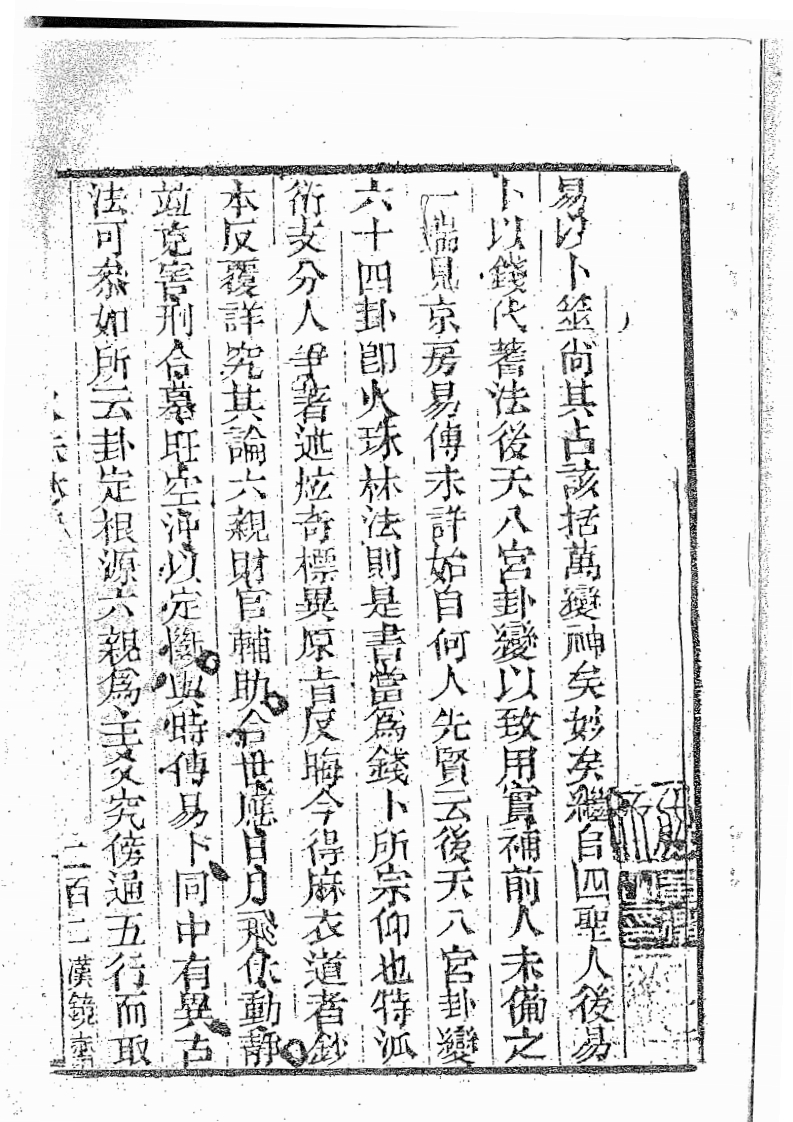 易以卜筮尚其占該括萬變神矣妙矣繼自四聖人後易
卜以錢代蓍法後天八宮卦變以致用實補前人未備之
一端見京房易傳未詳始自何人先賢云後天八宮卦變
六十四卦卽火珠林法則是書當爲錢卜所宗仰也特派
術支分人爭著述炫奇標異原旨反晦今得麻衣道者鈔
本反覆詳究其論六親財官輔助合世應日月飛伏動靜
並克害刑合墓旺空沖以定斷與時傳易卜同中有異古
法可叅如所云卦定根源六親爲主爻究傍通五行而取
二百二 漢鏡齋